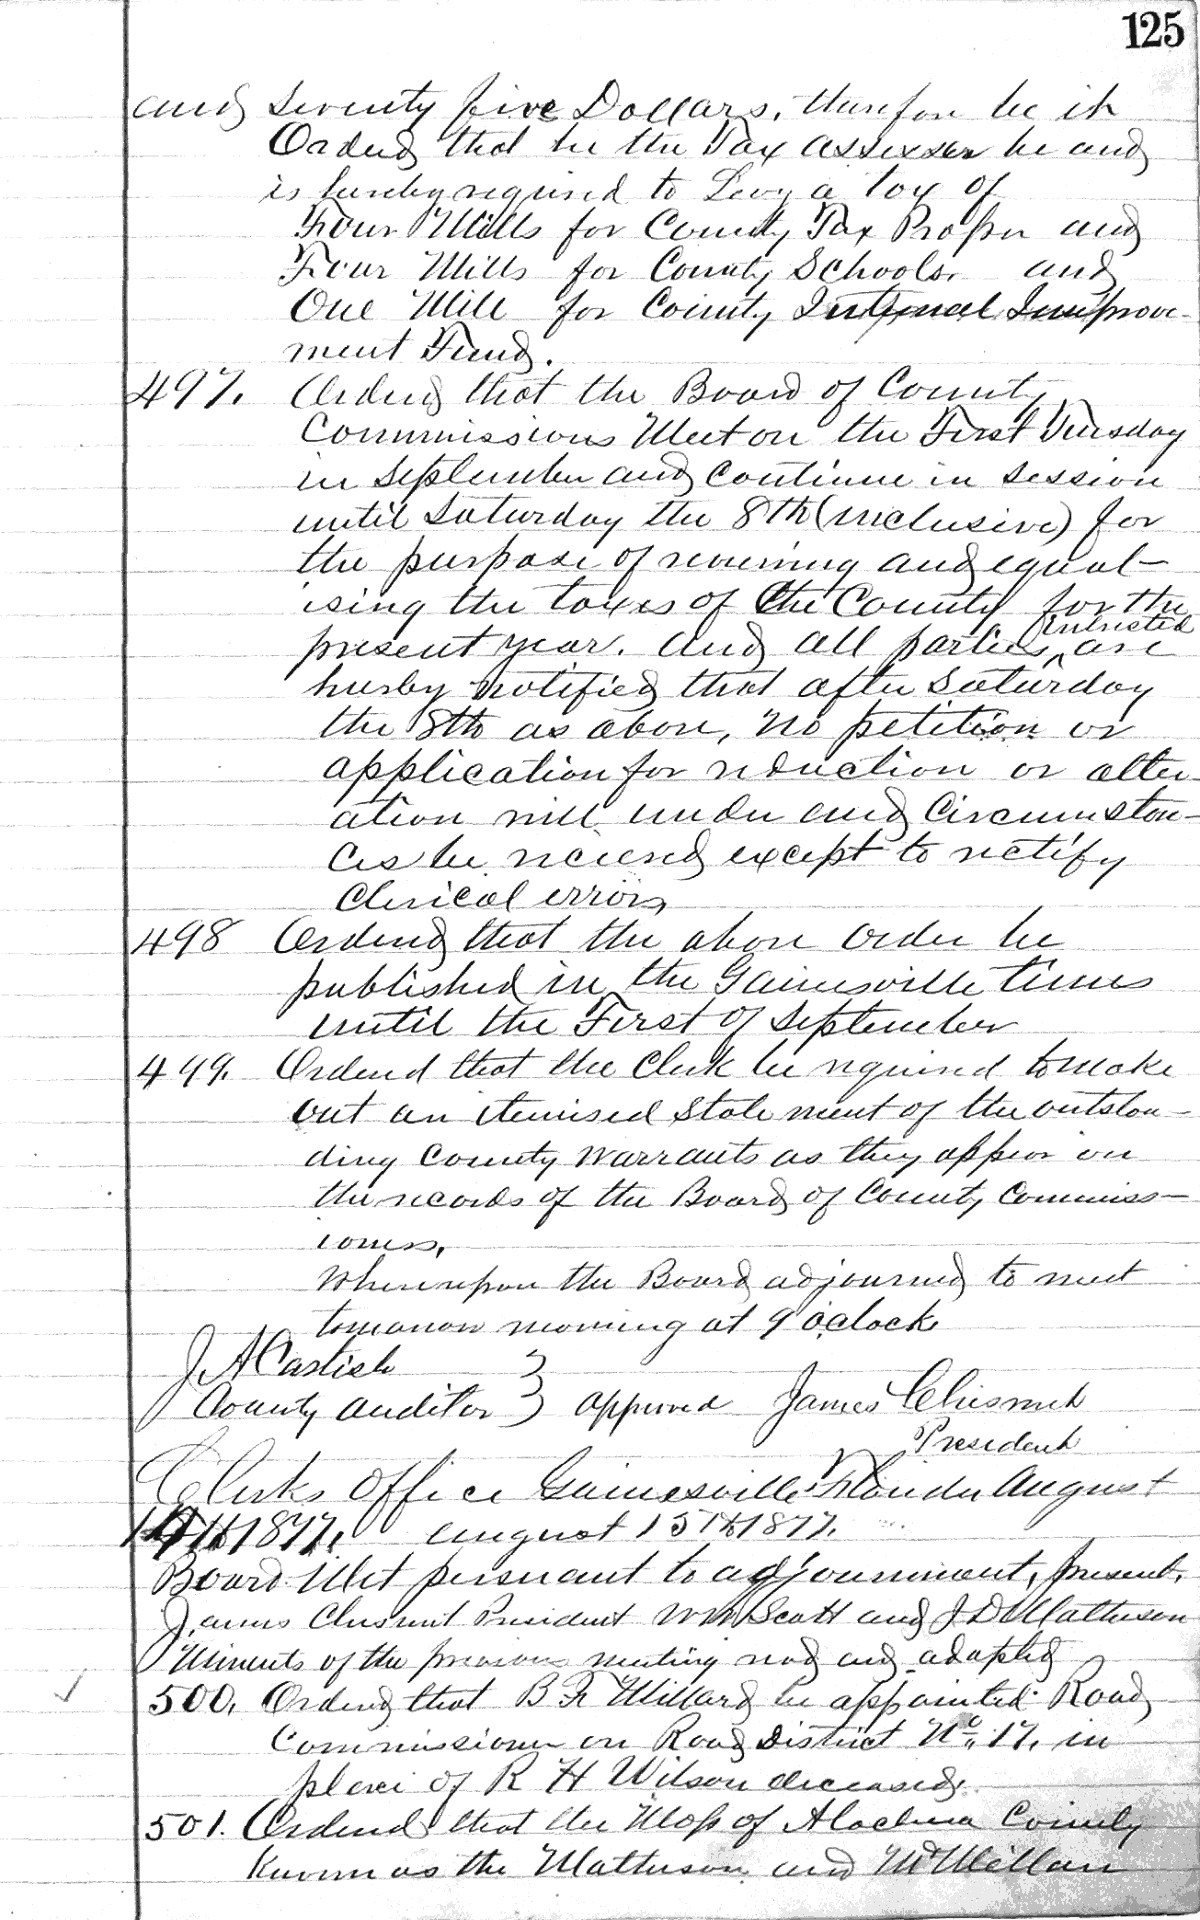 125
and Seventy five Dollars, therefore be it
Ordered that be the Tax Assessor be and
is hereby required to Levy a tax of
Four Mills for County Tax Proper and
Four Mills for County Schools. and
One Mill for County Internal Improve-
ment Fund.
497. Ordered that the Board of County
Commissioners Meet on the First Tuesday
in September and continue in session
until Saturday the 8th (inclusive) for
the purpose of reviewing and equal-
ising the taxes of the County for the
present year. And all parties intrusted are
hereby notified that after Saturday
the 8th as above, no petition or
application for reduction or alter-
ation will under and Circumstan-
ces be received except to rectify
Clerical errors
498 Ordered that the above order be
published in the Gainesville times
until the First of September
499. Ordered that the Clerk be required to make
out an itemised Statement of the outstan-
ding County Warrants as they appear on
the records of the Board of County Commiss-
ioners.
Whereupon the Board adjourned to meet
tomorrow morning at 9 oclock
J. A Carlisle
County Auditor } approved James Chesnut
President
Clerks Office Gainesville Florida August
14th 1877. August 15th 1877.
Board Met persuant to adjournment, present,
James Chesnut President Wm Scott and J D Matheson
Minuets of the previous meeting read and adopted
500. Ordered that B F Willard be appointed Road
Commissioner on Road District No. 17. in
place of R H Wilson deceased.
501. Ordered that the Map of Alachua County
Known as the Matheson and McMillan